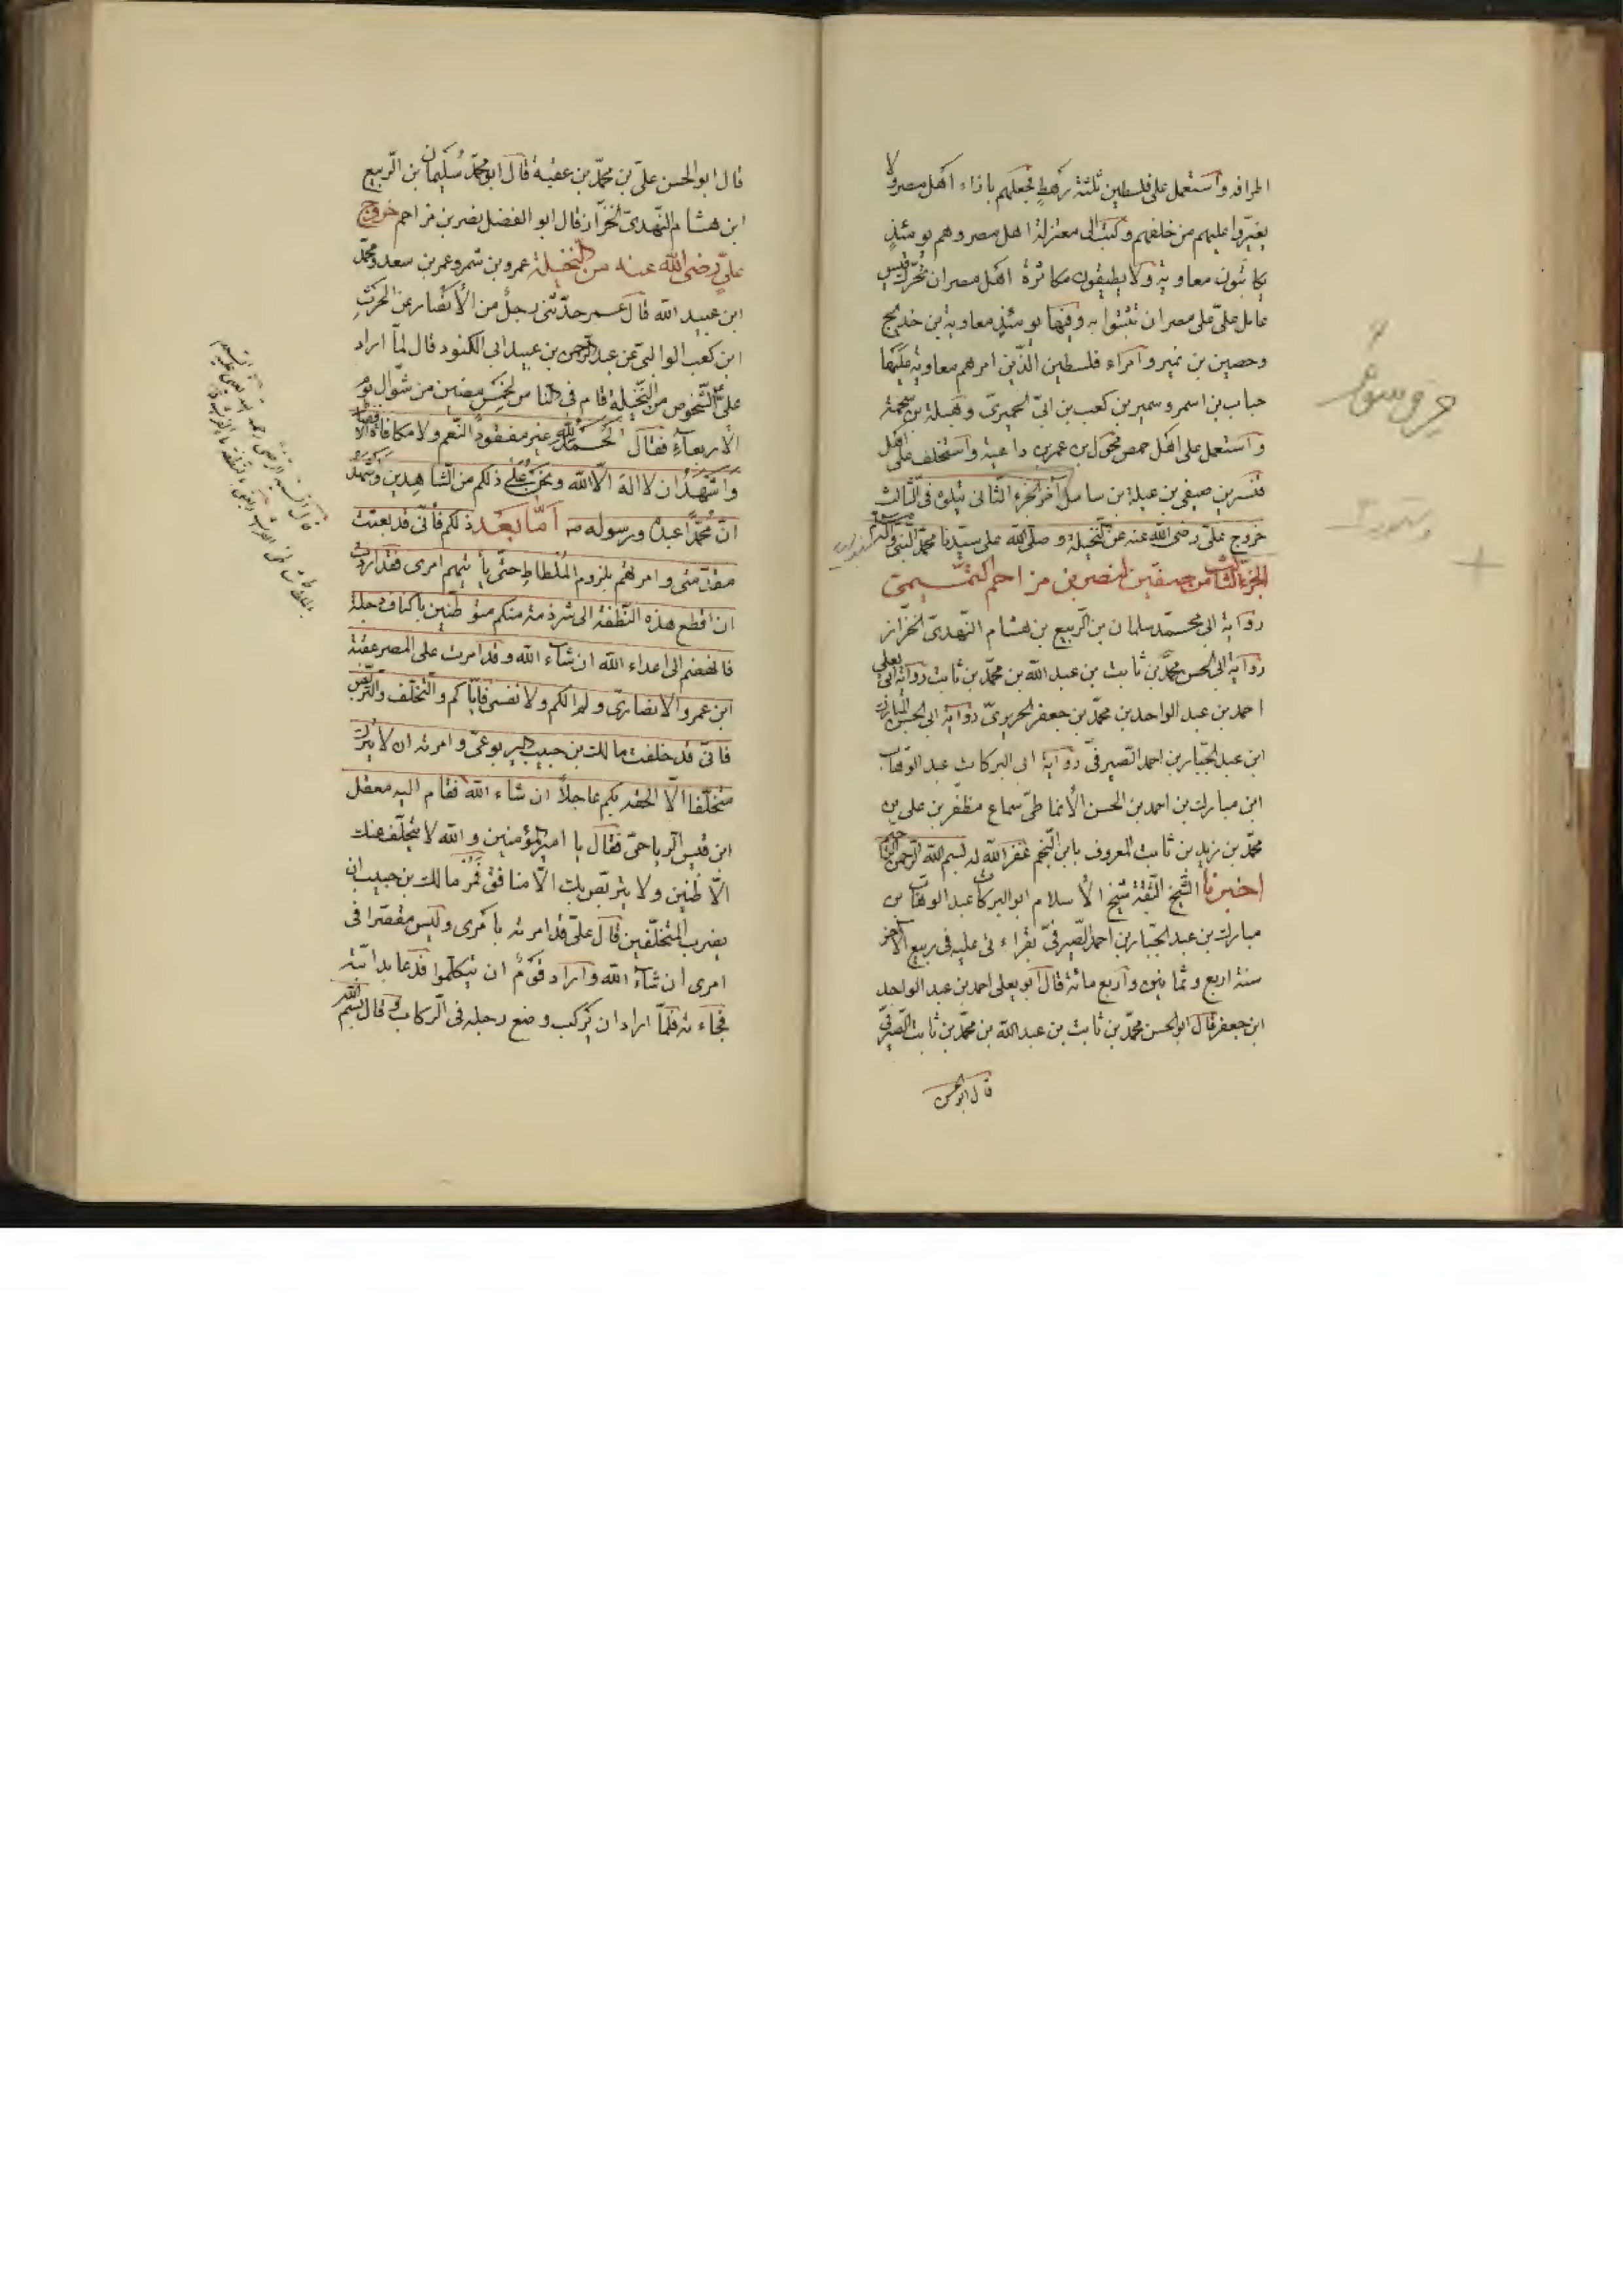 اطرافه واستعمل على فلسطين ثلثة رهط فجعلهم بازاء اهل مصر ولا
يغيروا عليهم من خلفهم وكتب الى معتزلة اهل مصر وهم يومئذ
يكاتبون معاوية ولا يطيقون مكاثرة اهل مصر ان تحرك قيس
عامل على على مصر ان تثبتوا به وفيها يومئذ معاوية بن خديج
وحصين بن نمير وامراء فلسطين الذين امرهم معاوية عليها
حباب بن اسمر وسمير بن كعب بن ابي الحميرى وهيلة بن سحمة
واستعمل على اهل حمص محول بن عمر بن داعية واستخلف على اهل
قنسرين صيفى بن عيلة بن سامل آخر الجزء الثانى يتلوه فى الثالث
خروج على رضى الله عنه من النخيلة وصلى الله على سيدنا محمد النبى وآله
الجزء الثالث من صفين لنصر بن مزاحم التميمى
رواية ابى محمد سلمان بن الربيع بن هشام النهدى الخزاز
رواية ابى الحسن محمد بن ثابت بن عبد الله بن محمد بن ثابت رواية ابى يعلى
احمد بن عبد الواحد بن محمد بن جعفر الحريرى رواية ابى الحسن المبارك
ابن عبد الجبار بن احمد الصيرفى رواية ابى البركات عبد الوهاب
ابن مبارك بن احمد بن الحسن الأنماطى سماع مظفر بن على بن
محمد بن زيد بن ثابت المعروف بابن النجم غفر الله له بسم الله الرحمن الرحيم
اخبرنا الشيخ الثقة شيخ الأسلام ابو البركات عبد الوهاب بن
مبارك بن عبد الجبار بن احمد الصيرفى بقراءتى عليه فى ربيع الآخر
سنة اربع وثمانين واربع مائة قال ابو يعلى احمد بن عبد الواحد
ابن جعفر قال ابو الحسن محمد بن ثابت بن عبد الله بن محمد بن ثابت الصيرفى
قال ابو الحسن
قال ابو الحسن على بن محمد بن عقبة قال ابو محمد سليمان بن الربيع
ابن هشام النهدى الخزاز قال ابو الفضل نصر بن مزاحم خروج
على رضى الله عنه من النخيلة عمرو بن شمر وعمر بن سعد ومحمد
ابن عبيد الله قال عمر حدثنى رجل من الأنصار عن الحرث
ابن كعب الوالبى عن عبد الرحمن بن عبيد ابى الكنود قال لما اراد
على الشخوص من النخيلة قام فى الناس لخمس مضين من شوال يوم
الأربعاء فقال الحمد لله غير مفقود النعم ولا مكافاء الافضال
واشهد ان لا اله الا الله ونحن على ذلكم من الشاهدين واشهد
ان محمدا عبده ورسوله صه اما بعد ذلكم فأنى قد بعثت
مقدمتى وامرتهم بلزوم الملطاط حتى يأتيهم امرى فقد اردت
ان اقطع هذه النطفة الى شرذمة منكم موطنين باكناف دجلة
فانهضهم الى اعداء الله ان شاء الله وقد امرت على المصر عقبة
ابن عمرو الانصارى ولم آلكم ولا نفسى فاياكم والتخلف والتربص
فانى قد خلفت مالك بن حبيب اليربوعى وامرته ان لا يترك
متخلفا الا الحقه بكم عاجلا ان شاء الله فقام اليه معقل
ابن قيس الرياحى فقال يا امير المؤمنين والله لا يتخلف عنك
الا ظنين ولا يتربص بك الا منافق فمر مالك بن حبيب ان
يضرب المتخلفين قال على قد امرته بامرى وليس مقصرا فى
امرى ان شاء الله واراد قوم ان يتكلموا فدعا بدابته
فجاءته فلما اراد ان يركب وضع رجله فى الركاب وقال بسم الله